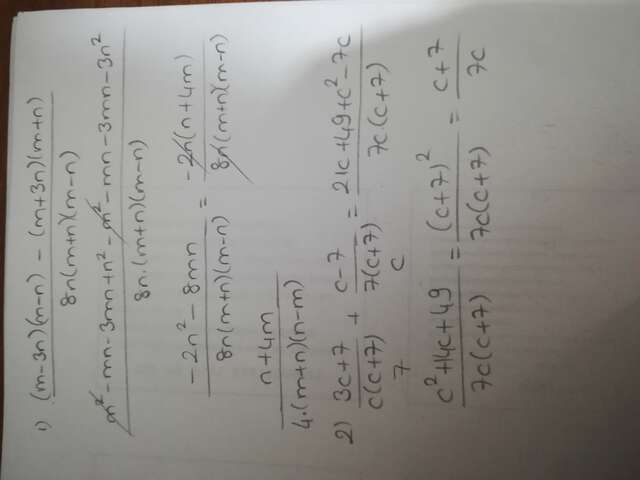 1) (m-3n)(m-n) - (m+3n)(m+n) / 8n(m+n)(m-n)
m² - mn - 3mn + n² - m² - mn - 3mn - 3n² / 8n·(m+n)(m-n)
-2n² - 8mn / 8n(m+n)(m-n) = -2n(n+4m) / 8n(m+n)(m-n)
n+4m / 4·(m+n)(n-m)
2) 3c+7 / c(c+7) + c-7 / 7(c+7) = 21c+49+c²-7c / 7c·(c+7)
7 c
c²+14c+49 / 7c(c+7) = (c+7)² / 7c(c+7) = c+7 / 7c